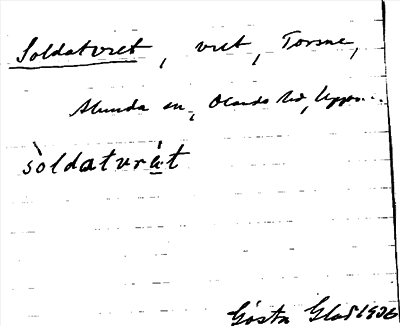 Soldatvret, vret, Torsne,
Alunda sn, Olands hd, Uppl..
sòldatvrèt
Gösta Glas 1926